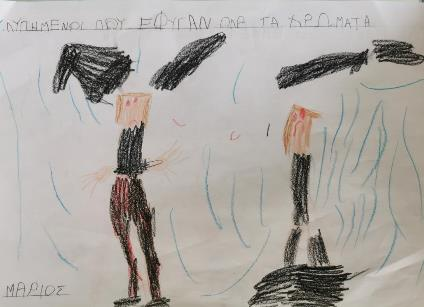 ΛΥΠΗΜΕΝΟΙ ΠΟΥ ΕΦΥΓΑΝ ΟΛΑ ΤΑ ΧΡΩΜΑΤΑ
ΜΑΡΙΟΣ